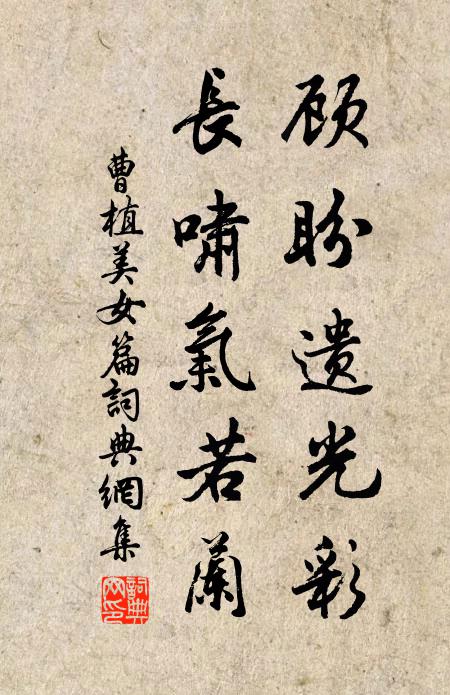 顾盼遗光彩
長嘯氣若蘭
曹植美女篇詞典網集
詞典网印